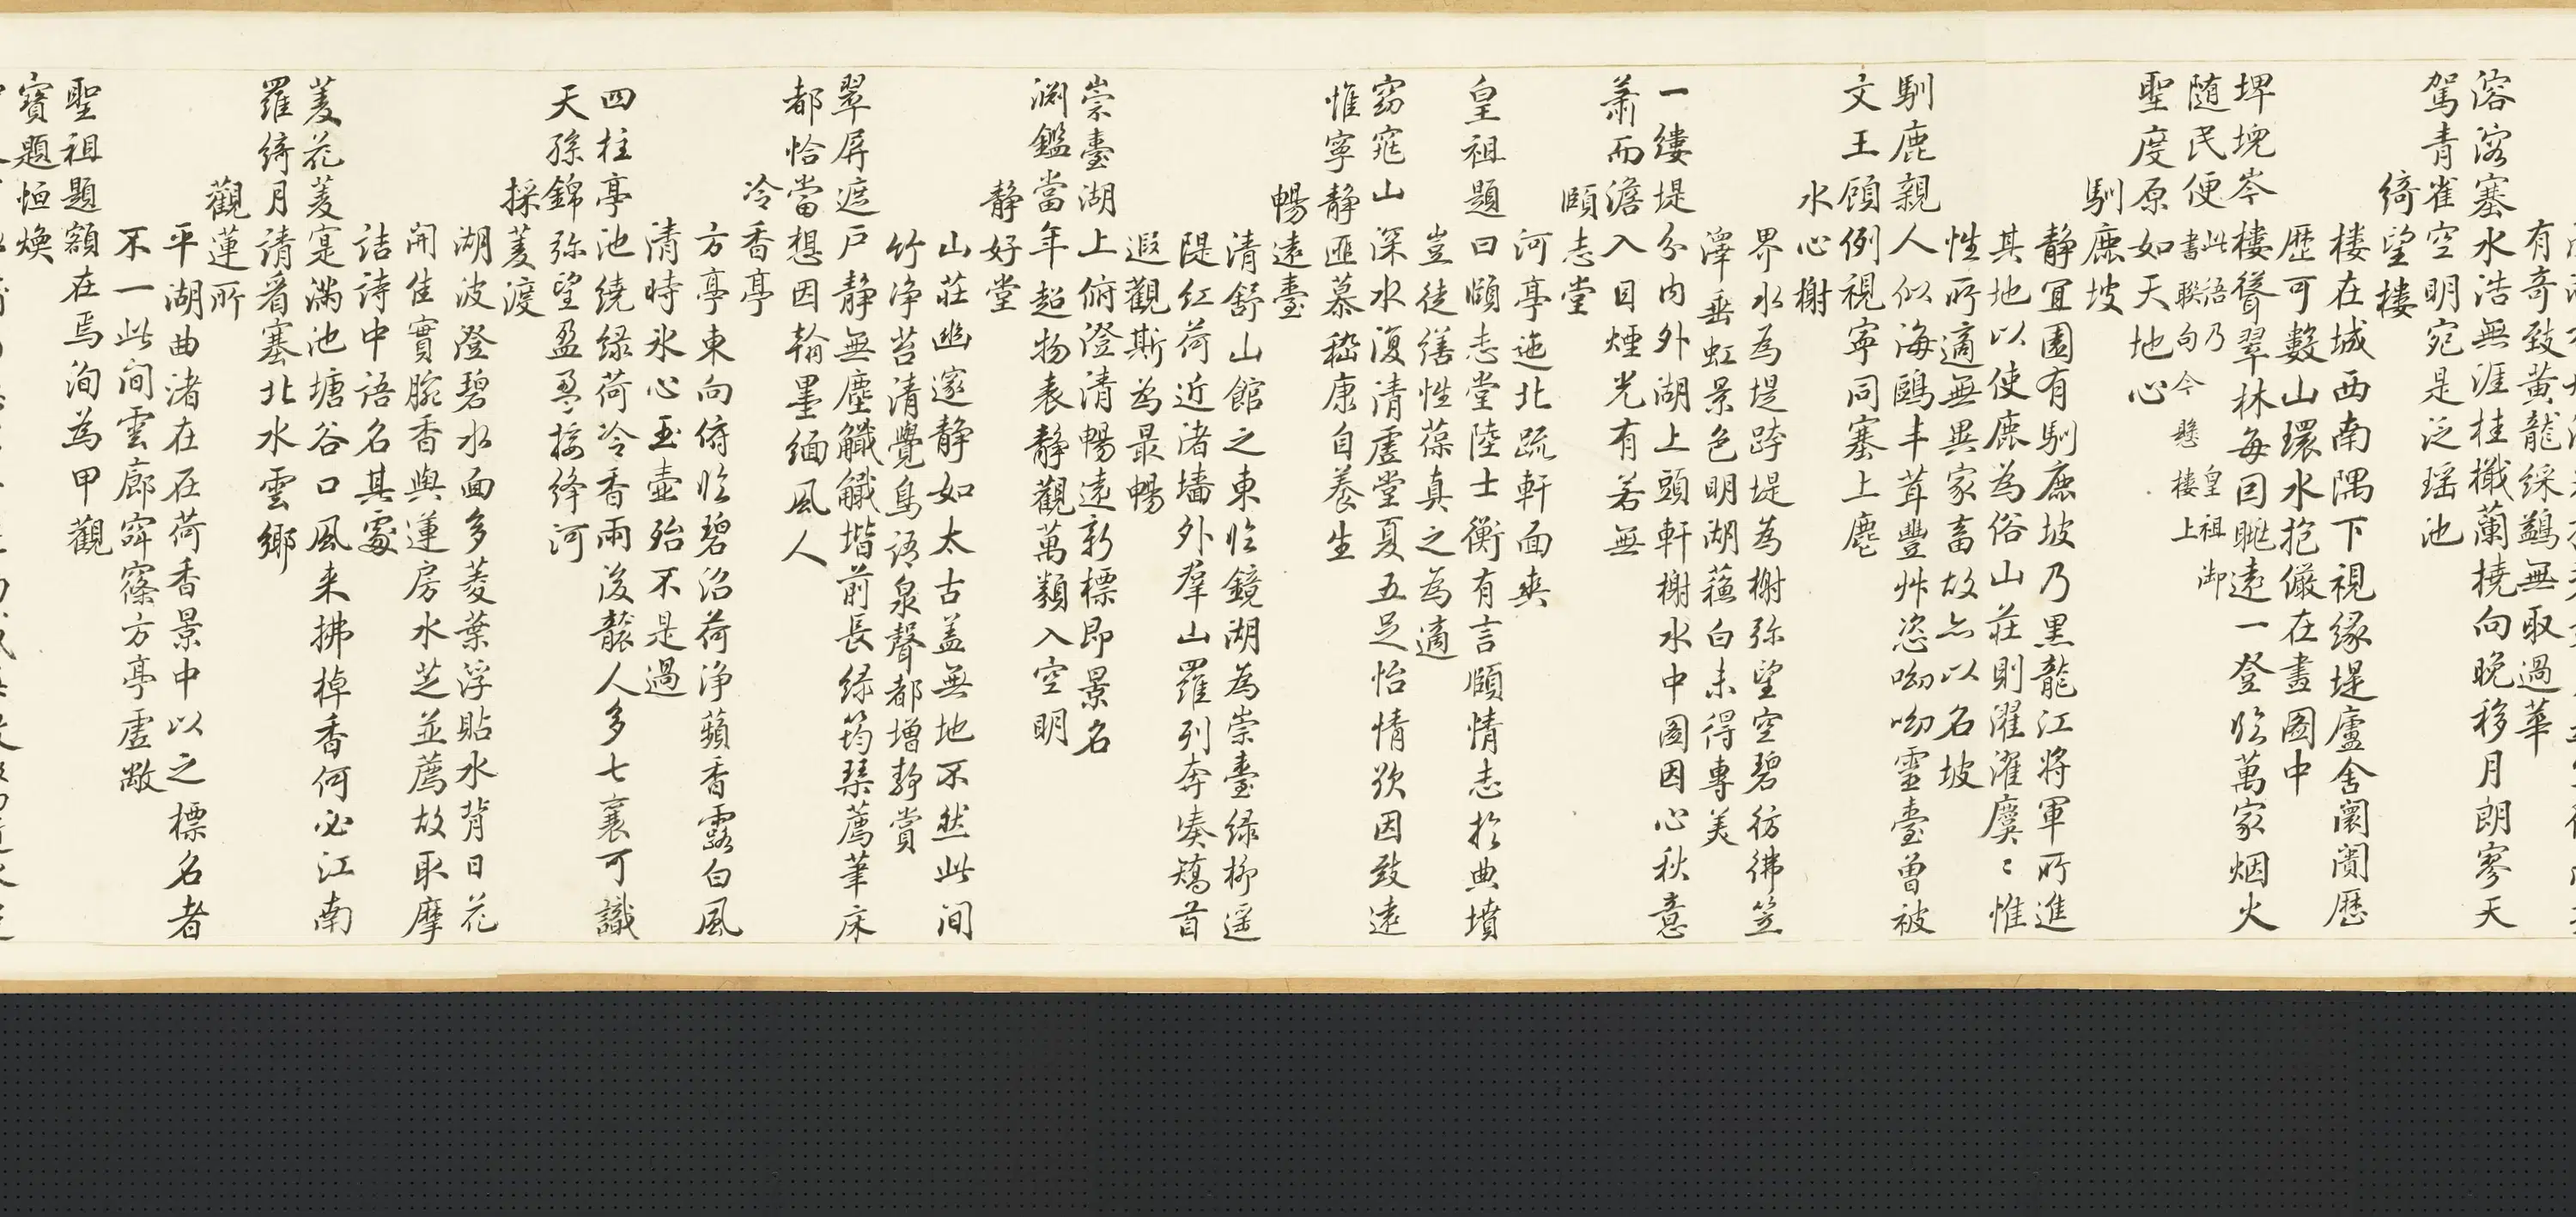 有奇致黃龍綵鷁無取過華
溶溶塞水浩無涯桂檝蘭橈向晚移月朗寥天
駕青雀空明宛是泛瑤池
綺望樓
樓在城西南隅下視緣堤廬舍闤闠歷
歷可數山環水抱儼在畫圖中
埤堄岑樓聳翠林每因眺遠一登臨萬家烟火
隨民便此語乃皇祖御
書聯句今懸樓上
聖度原如天地心
馴鹿坡
靜宜園有馴鹿坡乃黑龍江將軍所進
其地以使鹿為俗山莊則濯濯麌〻惟
性所適無異家畜故亦以名坡
馴鹿親人似海鷗丰茸豐草恣呦呦靈臺曾被
文王顧例視寧同塞上麀
水心榭
界水為堤跨堤為榭弥望空碧彷彿笠
澤垂虹景色明湖蘓白未得專美
一縷堤分內外湖上頭軒榭水中圖因心秋意
蕭而澹入目煙光有若無
頤志堂
河亭迤北疏軒面爽
皇祖題曰頤志堂陸士衡有言頤情志於典墳
豈徒繕性葆真之為適
窈窕山深水復清虛堂夏五足怡情欲因致遠
惟寧靜匪慕嵇康自養生
暢遠臺
清舒山館之東臨鏡湖為崇臺綠柳遥
隄紅荷近渚墻外羣山羅列奔湊矯首
遐觀斯為最暢
崇臺湖上俯澄清暢遠新標即景名
淵鑑當年超物表靜觀萬類入空明
靜好堂
山莊幽邃靜如太古盖無地不然此間
竹淨苔清覺鳥語泉聲都增靜賞
翠屏遮戶靜無塵觿觿堦前長綠筠琹薦筆床
都恰當想因翰墨緬風人
冷香亭
方亭東向俯臨碧沼荷淨蘋香露白風
清時氷心玉壺殆不是過
四柱亭池繞綠荷冷香雨後襲人多七襄可識
天孫錦弥望盈盈接絳河
採菱渡
湖波澄碧水面多菱葉浮貼水背日花
開隹實腕香與蓮房水芝並薦故取摩
詰詩中語名其處
菱花菱寔滿池塘谷口風来拂棹香何必江南
羅綺月請看塞北水雲鄉
觀蓮所
平湖曲渚在在荷香景中以之標名者
不一此間雲廊窈窱方亭虛敞
聖祖題額在焉洵為甲觀
寳題恒煥